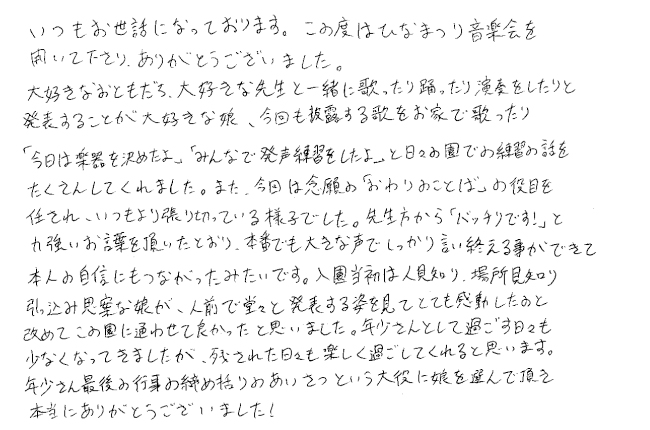 いつもお世話になっております。この度はひなまつり音楽会を
開いて下さり、ありがとうございました。
大好きなおともだち、大好きな先生と一緒に歌ったり踊ったり演奏をしたりと
発表することが大好きな娘、今回も披露する歌をお家で歌ったり
「今日は楽器を決めたよ」「みんなで発声練習をしたよ」と日々の園での練習の話を
たくさんしてくれました。また、今回は念願の「おわりのことば」の役目を
任され、いつもより張り切っている様子でした。先生方から「バッチリです!」と
力強いお言葉を頂いたとおり、本番でも大きな声でしっかり言い終える事ができて
本人の自信にもつながったみたいです。入園当初は人見知り、場所見知り
引込み思案な娘が、人前で堂々と発表する姿を見てとても感動したのと
改めてこの園に通わせて良かったと思いました。年少さんとして過ごす日々も
少なくなってきましたが、残された日々も楽しく過ごしてくれると思います。
年少さん最後の行事の締め括りのあいさつという大役に娘を選んで頂き
本当にありがとうございました!